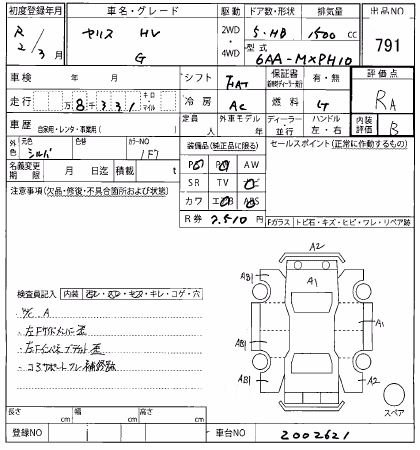 初度登録年月 車名・グレード 駆動 ドア数・形状 排気量 出品NO
R 2/3月 ヤリス HV G 2WD・4WD 5・HB 1500 cc 791
型式 6AA-MXPH10
車検 年 月 シフト FAT 保証書 有・無 評価点
走行 万 8千331 キロ・マイル 冷房 AC 燃料 G RA
車歴 自家用・レンタ・事業用( ) 定員 人 外車モデル 年 ディーラー・並行 ハンドル 左・右 内装評価 B
外色 元色 シルバ 色替 カラーNO 1F7 装備品(純正品に限る) セールスポイント(正常に作動するもの)
名義変更期限 月 日迄 積載 t AW
注意事項(欠品・修復・不具合箇所および状態) SR TV
カワ
R券 7,510円 Fガラス トビ石・キズ・ヒビ・ワレ・リペア跡
A2
A1
検査員記入 内装 キレ・コゲ・穴
A
左Fサイドメンバー歪
左Fインサイ
コアサポート 補修跡
A1
A2
スペア
長さ cm 幅 cm 高さ cm
登録NO 車台NO 2002621